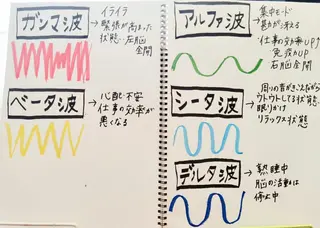 ガンマ波
→イライラ
緊張が高まった
状態・左脳
全開
ベータ波
→心配・不安
仕事の効率が
悪くなる
アルファ波
→集中モード
仕事の効率UP↑
免疫力UP
右脳全開
シータ波
→周りの音がきこえながら
ウトウトしてる状態
眠りかけ
リラックス状態
デルタ波
→熟睡中
脳の活動は
停止中